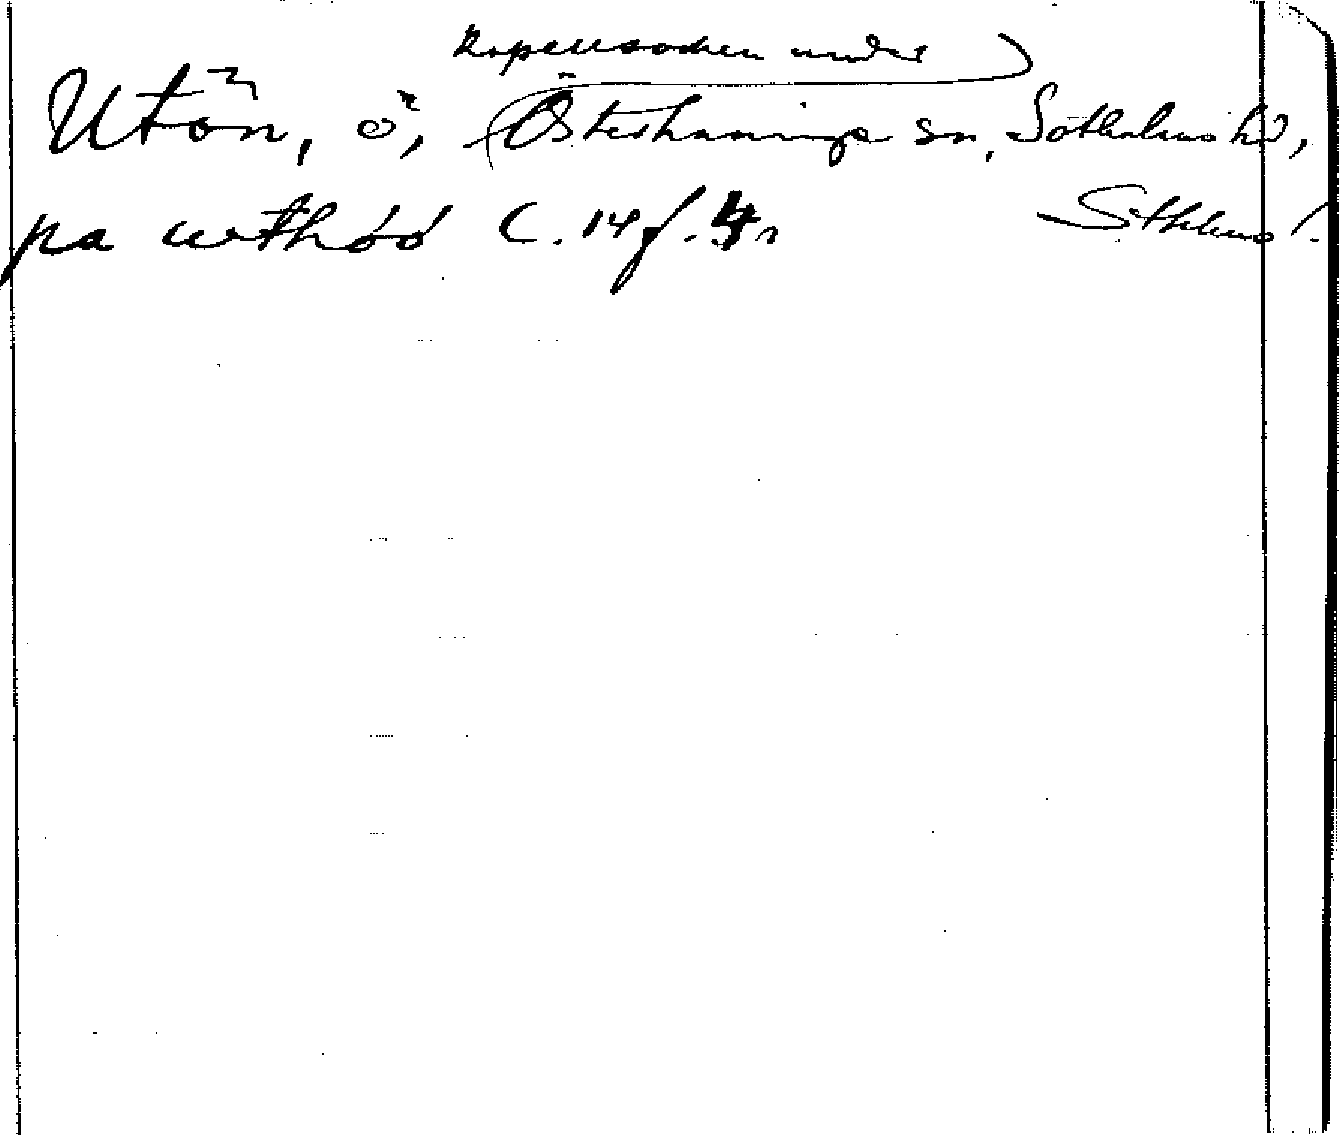 kapellsocken under
Utön, ö, Österhaninge sn, Sotholms hd,
pa wthöö C. 14 f. 4r Sthlms l.